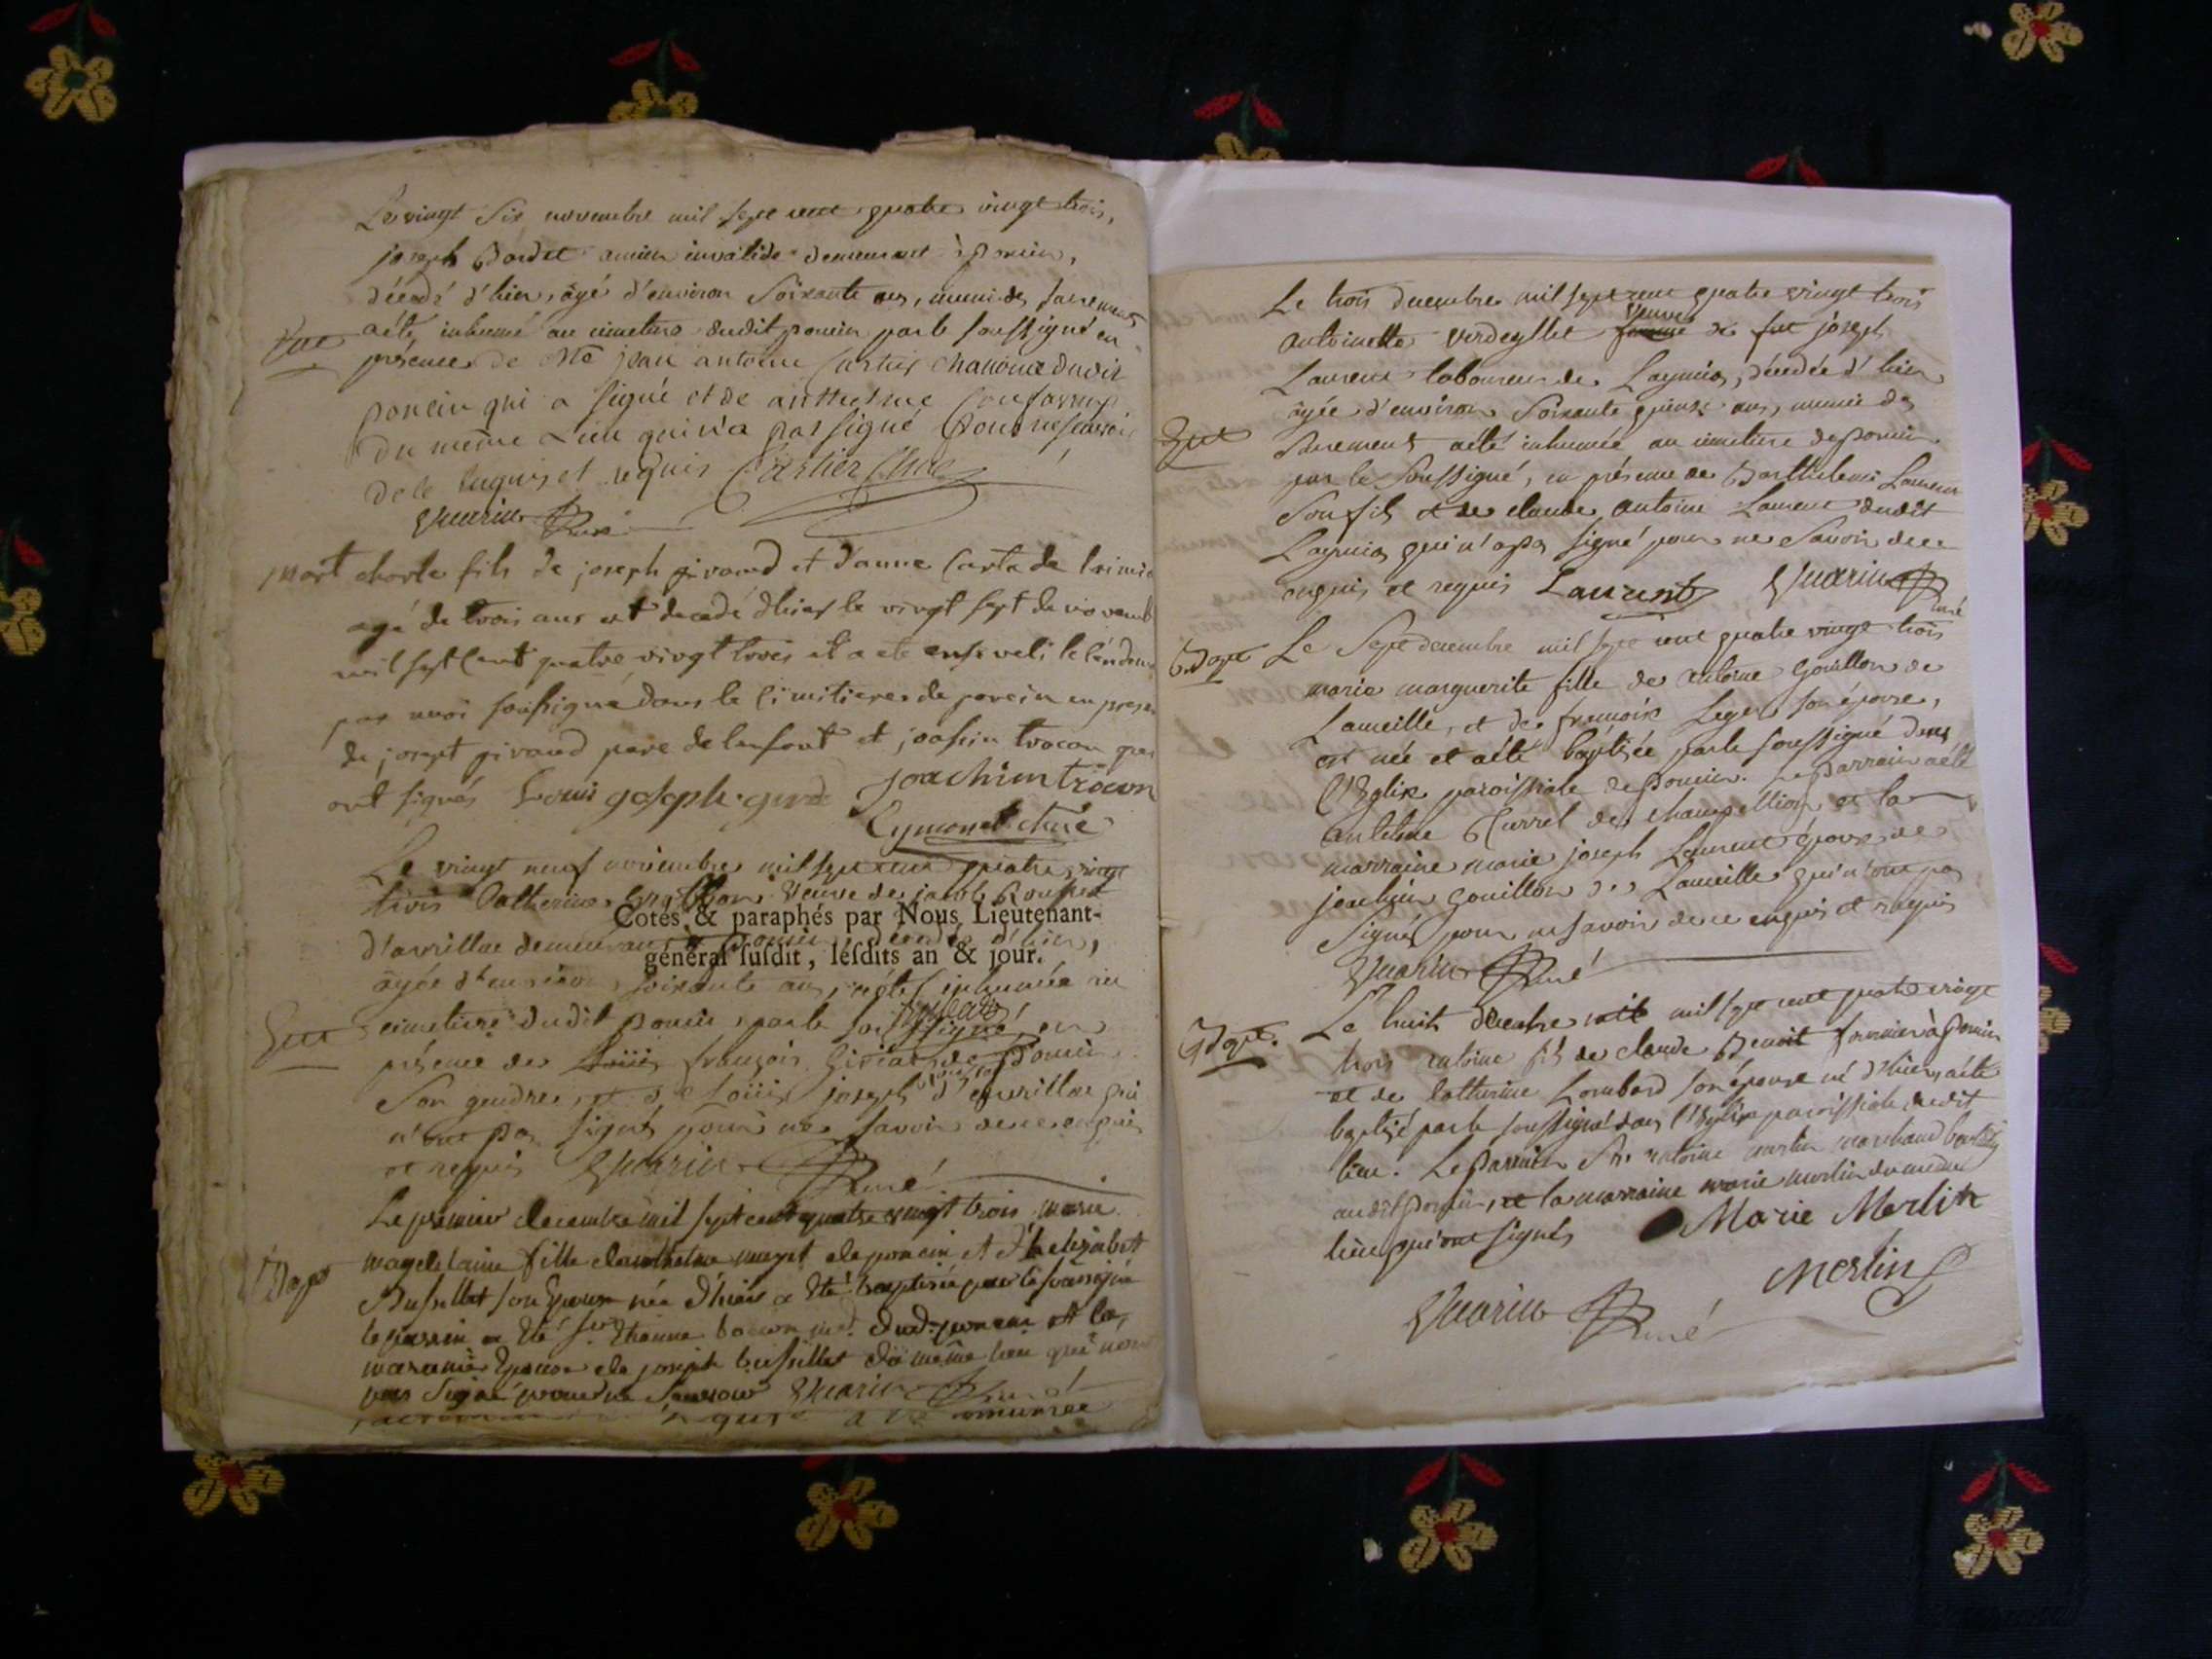 Le vingt six novembre mil sept cent quatre vingt trois,
joseph Bordet ancien invalide demeurant à Poncin,
décédé d'hier, âgé d'environ soixante ans, muni des sacremens
Sep
a été inhumé au cimetiere dudit poncin par le soussigné en
présence de Mre jean antoine Cartier Chanoine dudit
poncin qui a signé et de anthelme
du même Lieu qui n'a pas signé pour ne scavoir
de ce enquis et requis Cartier Chne
Quarin Curé
mort charle fils de joseph giraud et d'anne Carta de
agé de trois ans est decedé dhier le vingt sept de novemb
mil sept Cent quatre vingt trois et a ete enseveli le lendem
par moi soussigné dans le cimitiere de poncin en prese
de josept giraud pere de lenfant et joassin trocon qui
ont signés Louis goseph girod joachim trocon
Eymonet chne
Le vingt neuf novembre mil sept cent quatre vingt
trois Catherine veuve de
Cotés & paraphés par Nous, Lieutenant-
d'avrillac demeurant à Poncin, décédée d'hier,
général susdit, lesdits an & jour.
âgée d'environ soixante ans, a été inhumée au
cimetiere dudit Poncin par le soussigné, en
présence de Loüis françois de Poncin
son gendre, et de Loüis joseph d'avrillac qui
n'ont pas signés pour ne savoir de ce enquis
et requis Quarin Curé
Le premier decembre mil sept cent quatre vingt trois marie
Bapt
magdelaine fille danthelme de poncin et d'helizabet
Bussillet son Epouse née d'hier a été baptisée par le soussigné
le parrin a été sr. Etienne dud. poncin et la
maraine Epouse de joseph bussillet du même lieu qui n'ont
pas signé pour ne scavoir Quarin Curé
Le trois decembre mil sept cent quatre vingt trois
antoinette Verdeyllet femme veuve de feu joseph
Laurent laboureur de Leymia, décédée d'hier
âgée d'environ soixante quinze ans, munie des
Sep
sacremens a été inhumée au cimetiere de Poncin
par le soussigné, en présence de Barthelemi Laurent
son fils et de claude antoine Laurent dudit
Leymia qui n'a pas signé pour ne savoir de ce
enquis et requis Laurent Quarin Curé
Bapt
Le sept decembre mil sept cent quatre vingt trois
marie marguerite fille de antoine Gouillon de
Lameille, et de françoise Leger son épouse,
est née et a été baptisée par le soussigné dans
l'Eglise paroissiale de Poncin. Le parrain a été
antelme Curret de Champeillon, et la
marraine marie joseph Laurent épouse de
joachin Gouillon de Lameille qui n'ont pas
signés pour ne savoir de ce enquis et requis
Quarin Curé
Bapt.
Le huit decembre mil mil sept cent quatre vingt
trois antoine fils de claude Benoit fournier à Poncin
et de Catherine Lombard son épouse né d'hier, a été
baptisé par le soussigné dans l'Eglise paroissiale dudit
lieu. Le Parrain Sr. antoine merlin marchand
audit Poncin, et la marraine marie merlin du même
lieu qui ont signés Marie Merlin
Merlin
Quarin Curé